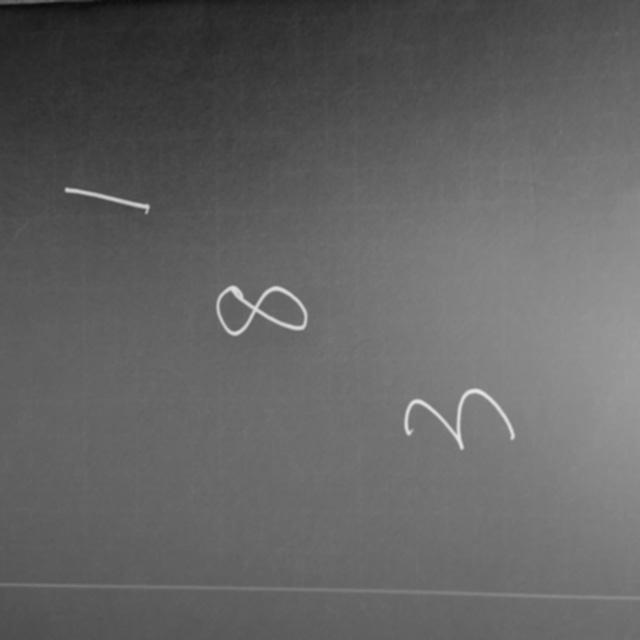 1
8
3